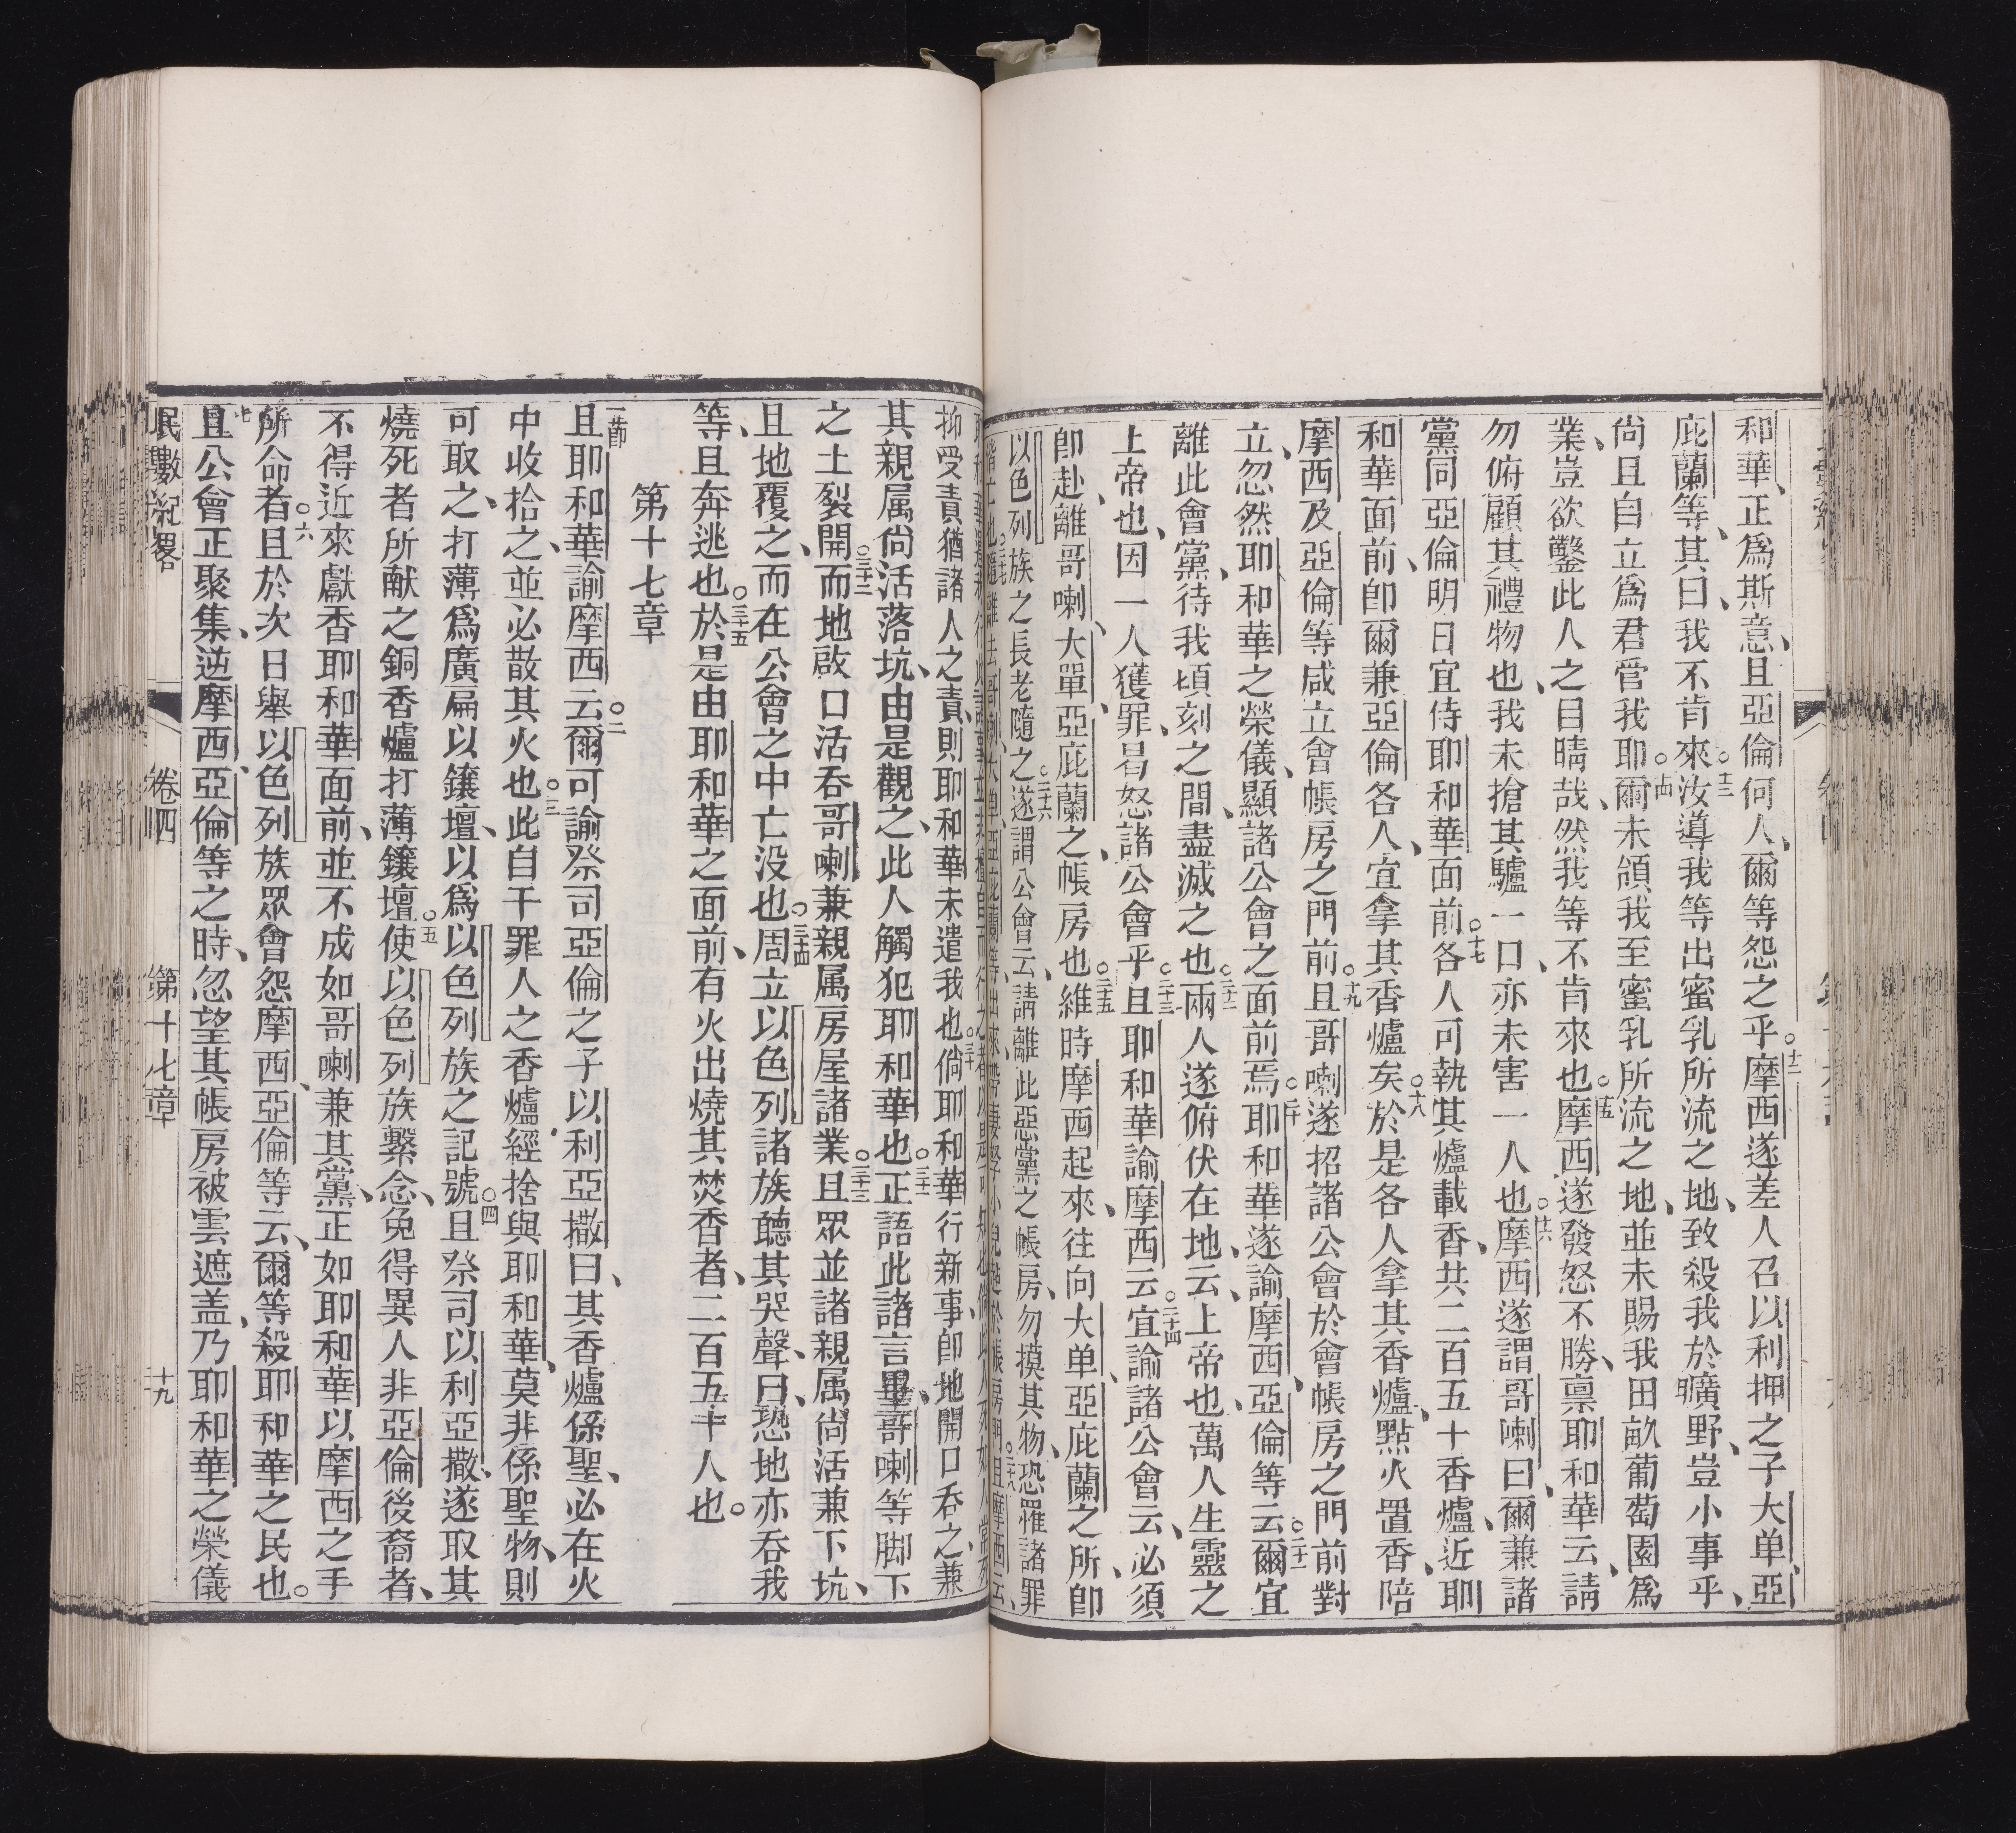 和華、正爲斯意、且亞倫何人、爾等怨之乎○十二摩西遂差人召以利押之子大单、亞
庇蘭等、其曰、我不肯來○十三汝導我等出蜜乳所流之地、致殺我於曠野、豈小事乎、
尙且自立爲君管我耶○十四爾未領我至蜜乳所流之地、並未賜我田畝葡萄園爲
業、豈欲鑿此人之目睛哉、然我等不肯來也○十五摩西遂發怒不勝、禀耶和華云、請
勿俯顧其禮物也、我未搶其驢一口、亦未害一人也○十六摩西遂謂哥喇曰、爾兼諸
黨同亞倫明日宜侍耶和華面前○十七各人可執其爐載香、共二百五十香爐、近耶
和華面前、卽爾兼亞倫各人、宜拿其香爐矣○十八於是各人拿其香爐、點火置香、陪
摩西及亞倫等咸立會帳房之門前○十九且哥喇遂招諸公會於會帳房之門前對
立、忽然耶和華之榮儀、顯諸公會之面前焉○二十耶和華遂諭摩西、亞倫等云○二十一爾宜
離此會黨、待我頃刻之間、盡滅之也○二十二兩人遂俯伏在地、云、上帝也、萬人生靈之
上帝也、因一人獲罪、曷怒諸公會乎○二十三且耶和華諭摩西云○二十四宜諭諸公會云、必須
卽赴、離哥喇、大單、亞庇蘭之帳房也○二十五維時摩西起來、往向大单、亞庇蘭之所、卽
以色列族之長老隨之○二十六遂謂公會云、請離此惡黨之帳房、勿摸其物、恐罹諸罪
抑受責猶諸人之責、則耶和華未遣我也○三十倘耶和華行新事、卽地開口吞之、兼
其親属尙活落坑、由是觀之、此人觸犯耶和華也○三十一正語此諸言畢、哥喇等脚下
之土裂開○三十二而地啟口活吞哥喇兼親属房屋諸業○三十三且眾並諸親属尙活兼下坑、
且地覆之、而在公會之中亡没也○三十四周立以色列諸族聽其哭聲、曰、恐地亦吞我
等、且奔逃也○三十五於是由耶和華之面前、有火出燒其焚香者、二百五十人也。
第十七章
一節且耶和華諭摩西云○二爾可諭祭司亞倫之子以利亞撒曰、其香爐係聖、必在火
中收拾之、並必散其火也○三此自干罪人之香爐、經捨與耶和華、莫非係聖物、則
可取之、打薄爲廣扁以鑲壇、以爲以色列族之記號○四且祭司以利亞撒、遂取其
燒死者所献之銅香爐打薄鑲壇○五使以色列族繫念、免得異人非亞倫後裔者、
不得近來獻香耶和華面前、並不成如哥喇兼其黨、正如耶和華以摩西之手
所命者○六且於次日舉以色列族眾會怨摩西、亞倫等云、爾等殺耶和華之民也。
七且公會正聚集、逆摩西、亞倫等之時、忽望其帳房被雲遮盖、乃耶和華之榮儀
民數紀畧 卷四 第十七章 十九